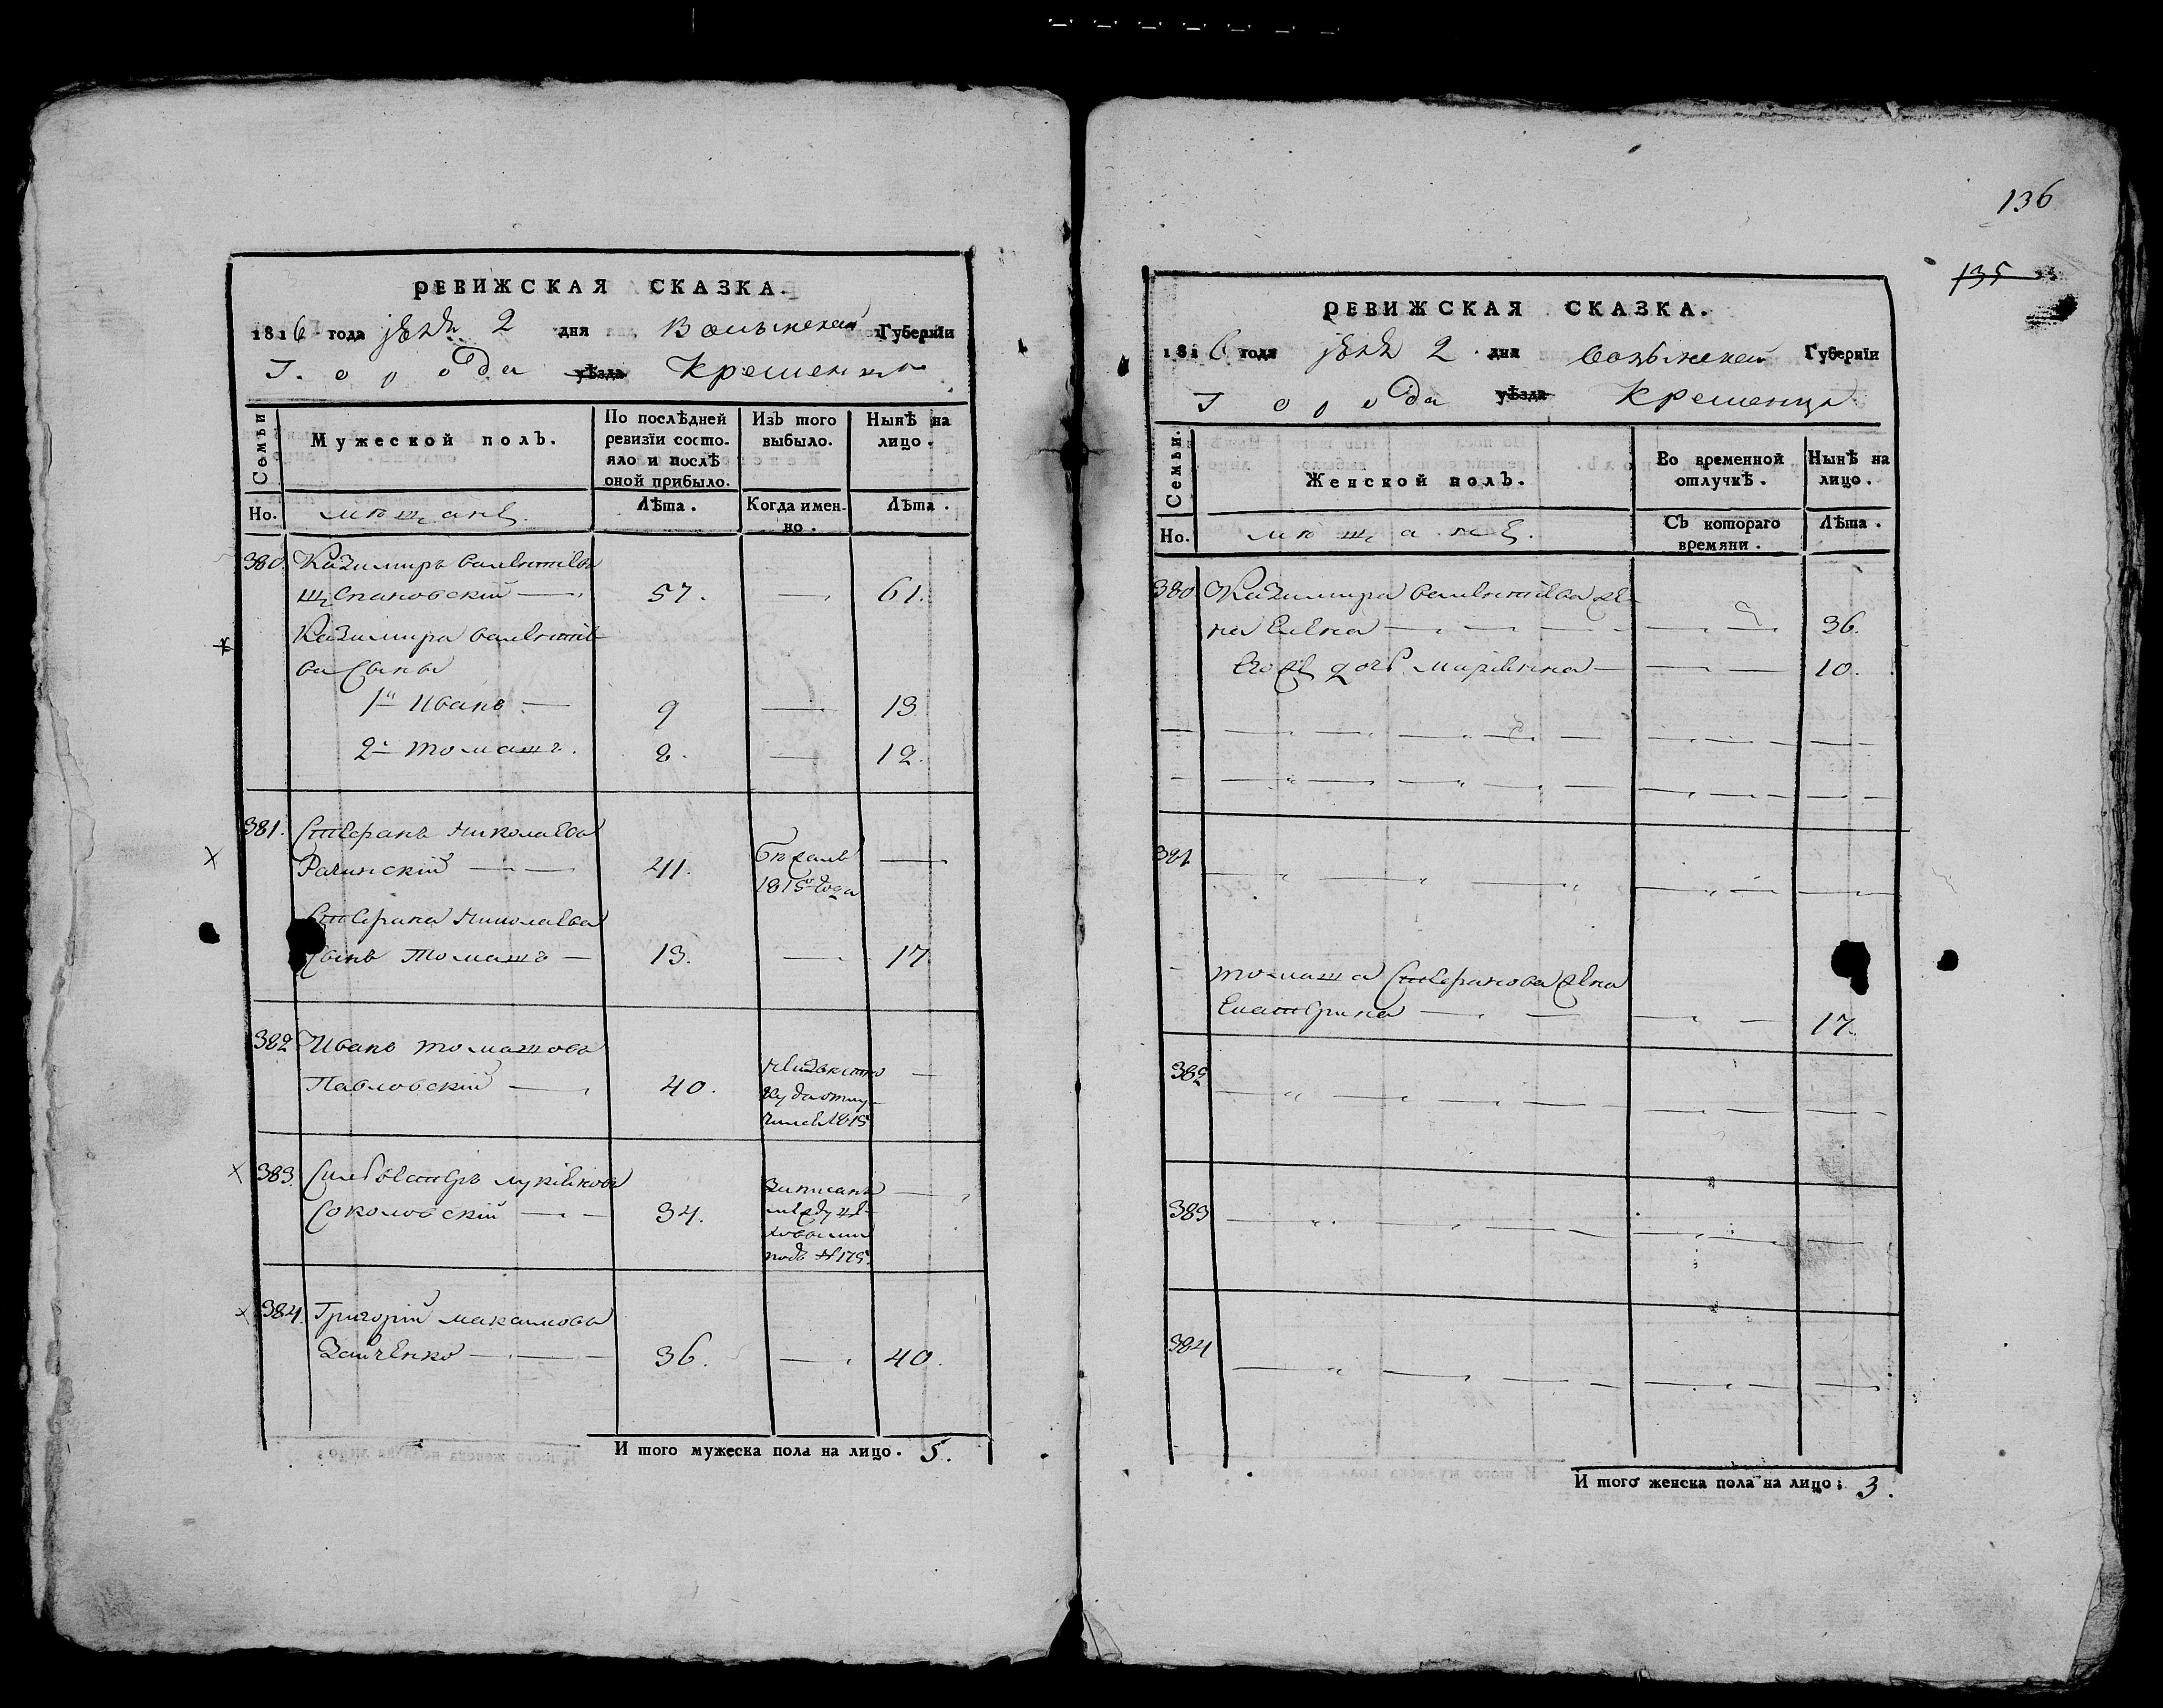 РЕВИЖСКАЯ СКАЗКА.
1816 года 2 дня Волынской Губернїи
Города уѣзда Кременца
Семьи
Мужеской полъ.
По послѣдней ревизїи состо-
яло и послѣ оной прибыло.
Изъ того выбыло.
Нынѣ на лицо.
Но.
мещане
Лѣта.
Когда имен-
но.
Лѣта.
380. Казимиръ
57. 61.
Казимира
сыны
1й Иванъ 9 13
2й Томашъ. 8. 12.
381. Стефанъ Николаевъ
Рачинскій 41. Бежалъ
1815го года
Стефана Николаева
сынъ Томашъ 13. 17
382 Иванъ Томашовъ
Павловскій 40. неизвестно
куда отлу-
чился 1815
383. Сильвестеръ
Соколовскій 34. Записанъ
между
подъ №175.
384. Григорій Максимовъ
Заиченко 36. 40.
И того мужеска пола на лицо. 5.
136
135
РЕВИЖСКАЯ СКАЗКА.
1816 года 2 дня Волынской Губернїи
Города уѣзда Кременца
Семьи.
Женской полъ.
Во временной
отлучкѣ.
Нынѣ на
лицо.
Но.
мещане
Съ котораго
времяни.
Лѣта.
380 Казимира же-
на Елена 36.
его же дочь Марiянна 10.
381
Томаша Стефанова жена
Екатерина 17.
382
383
384
И того женска пола на лицо: 3.